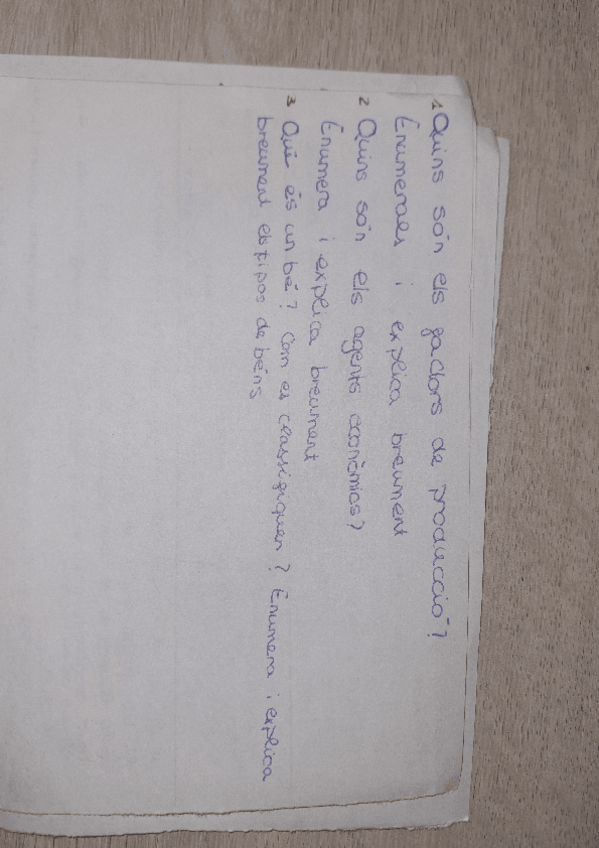 1 Quins són els factors de producció?
Enumerales i explica breument
2 Quins són els agents econòmics?
Enumera i explica breument
3 Què és un bé? Com es classifiquen? Enumera i explica
breument els tipos de béns